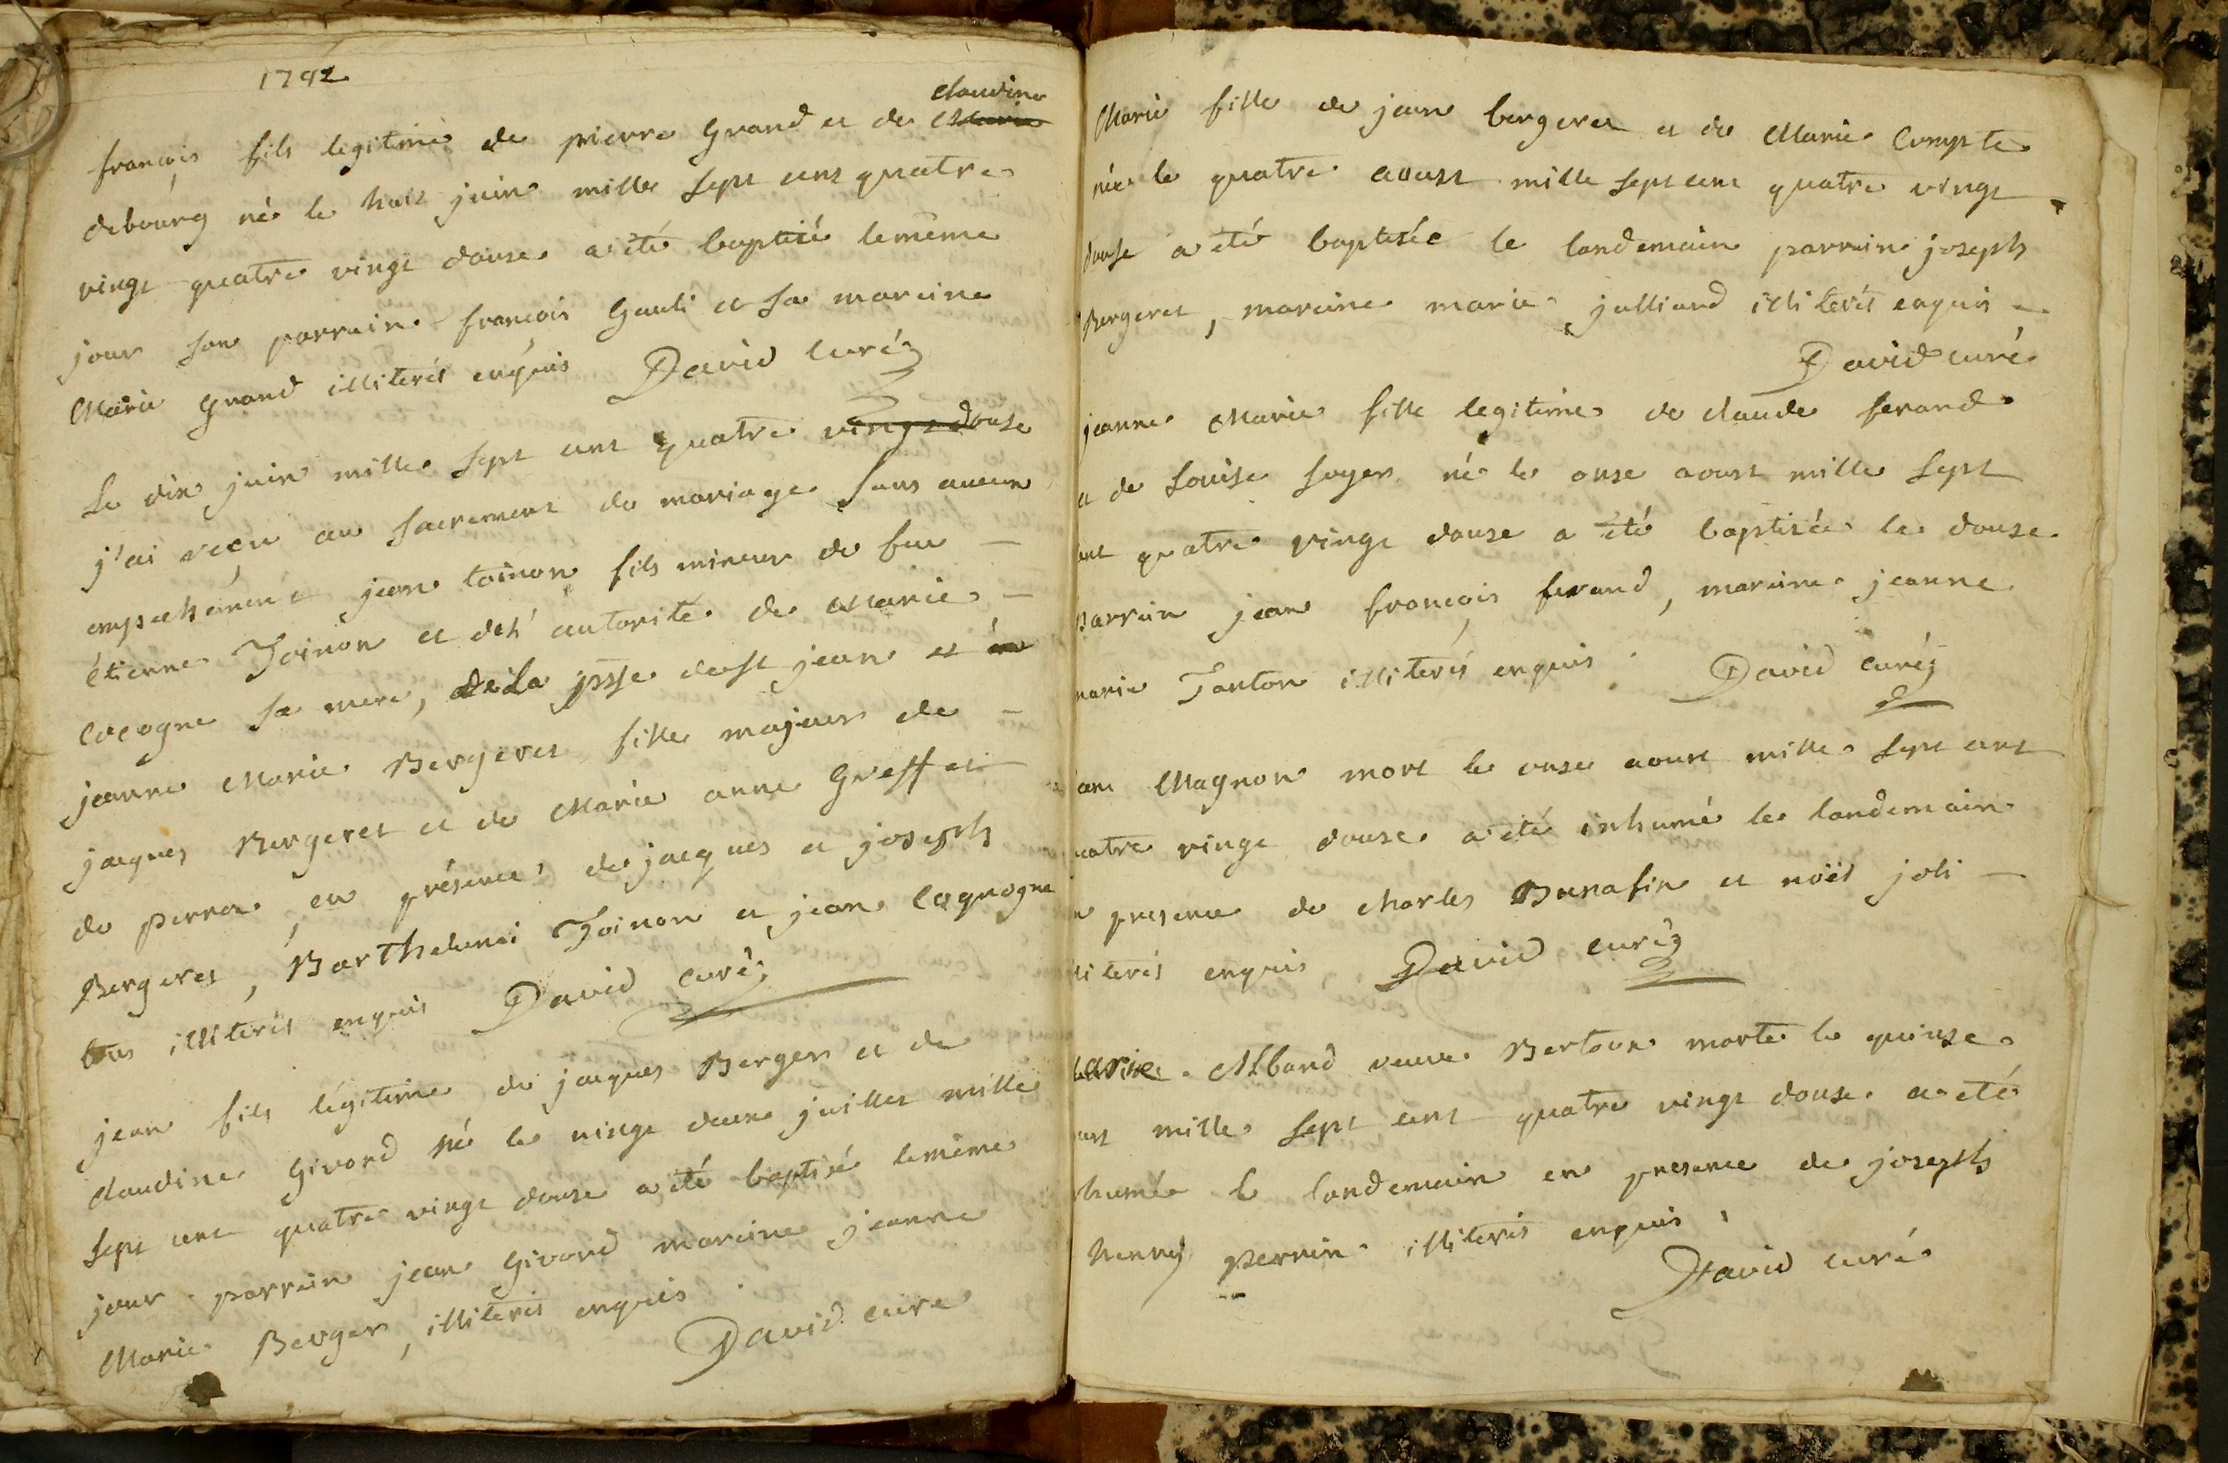 1792
claudine
françois fils legitime de pierre Grand et de Marie
debourg né le huit juin mille sept cent quatre
vingt quatre vingt douse a été baptisé le même
jour son parrain françois Gauti et sa maraine
Marie Grand illiterés enquis David curé
Le dix juin mille sept cent quatre vingt douse
j'ai reçu au sacrement de mariage sans aucun
empechement jean toinon fils mineur de feu
étienne Toinon et de l'autorité de Marie
Cocogne sa mere, de la psse de st jean et
jeanne Marie Bergeret fille majeur de
jacques Bergeret et de Marie anne Greffet
de perron, en présence de jacques et joseph
Bergeret, Barthelemi Toinon et jean Coquogne
tous illiterés enquis David curé
jean fils légitime de jacques Berger et de
Claudine Givord né le vingt deux juillet mille
sept cent quatre vingt douse a été baptisé le même
jour parrain jean Givord maraine jeanne
Marie Berger, illiterés enquis
David curé
Marie fille de jean bergeret et de Marie Compte
née le quatre aoust mille sept cent quatre vingt
douse a été baptisée le landemain parrain joseph
Bergeret, maraine marie julliard illiterés enquis
David curé
jeanne Marie fille legitime de claude ferand
et de Louise soyer né le onse aoust mille sept
cent quatre vingt douse a été baptisée le douse
parrain jean françois ferand, maraine jeanne
marie Tanton illiterés enquis David curé
Magnon mort le onse aoust mille sept cent
quatre vingt douse a été inhumé le landemain
presence de charles Bunafin et noël joli
illiterés enquis David curé
Marie Alband veuve Bertoux morte le quinse
aoust mille sept cent quatre vingt douse a été
inhumée le landemain en presence de joseph
henry perrin illiterés enquis,
David curé